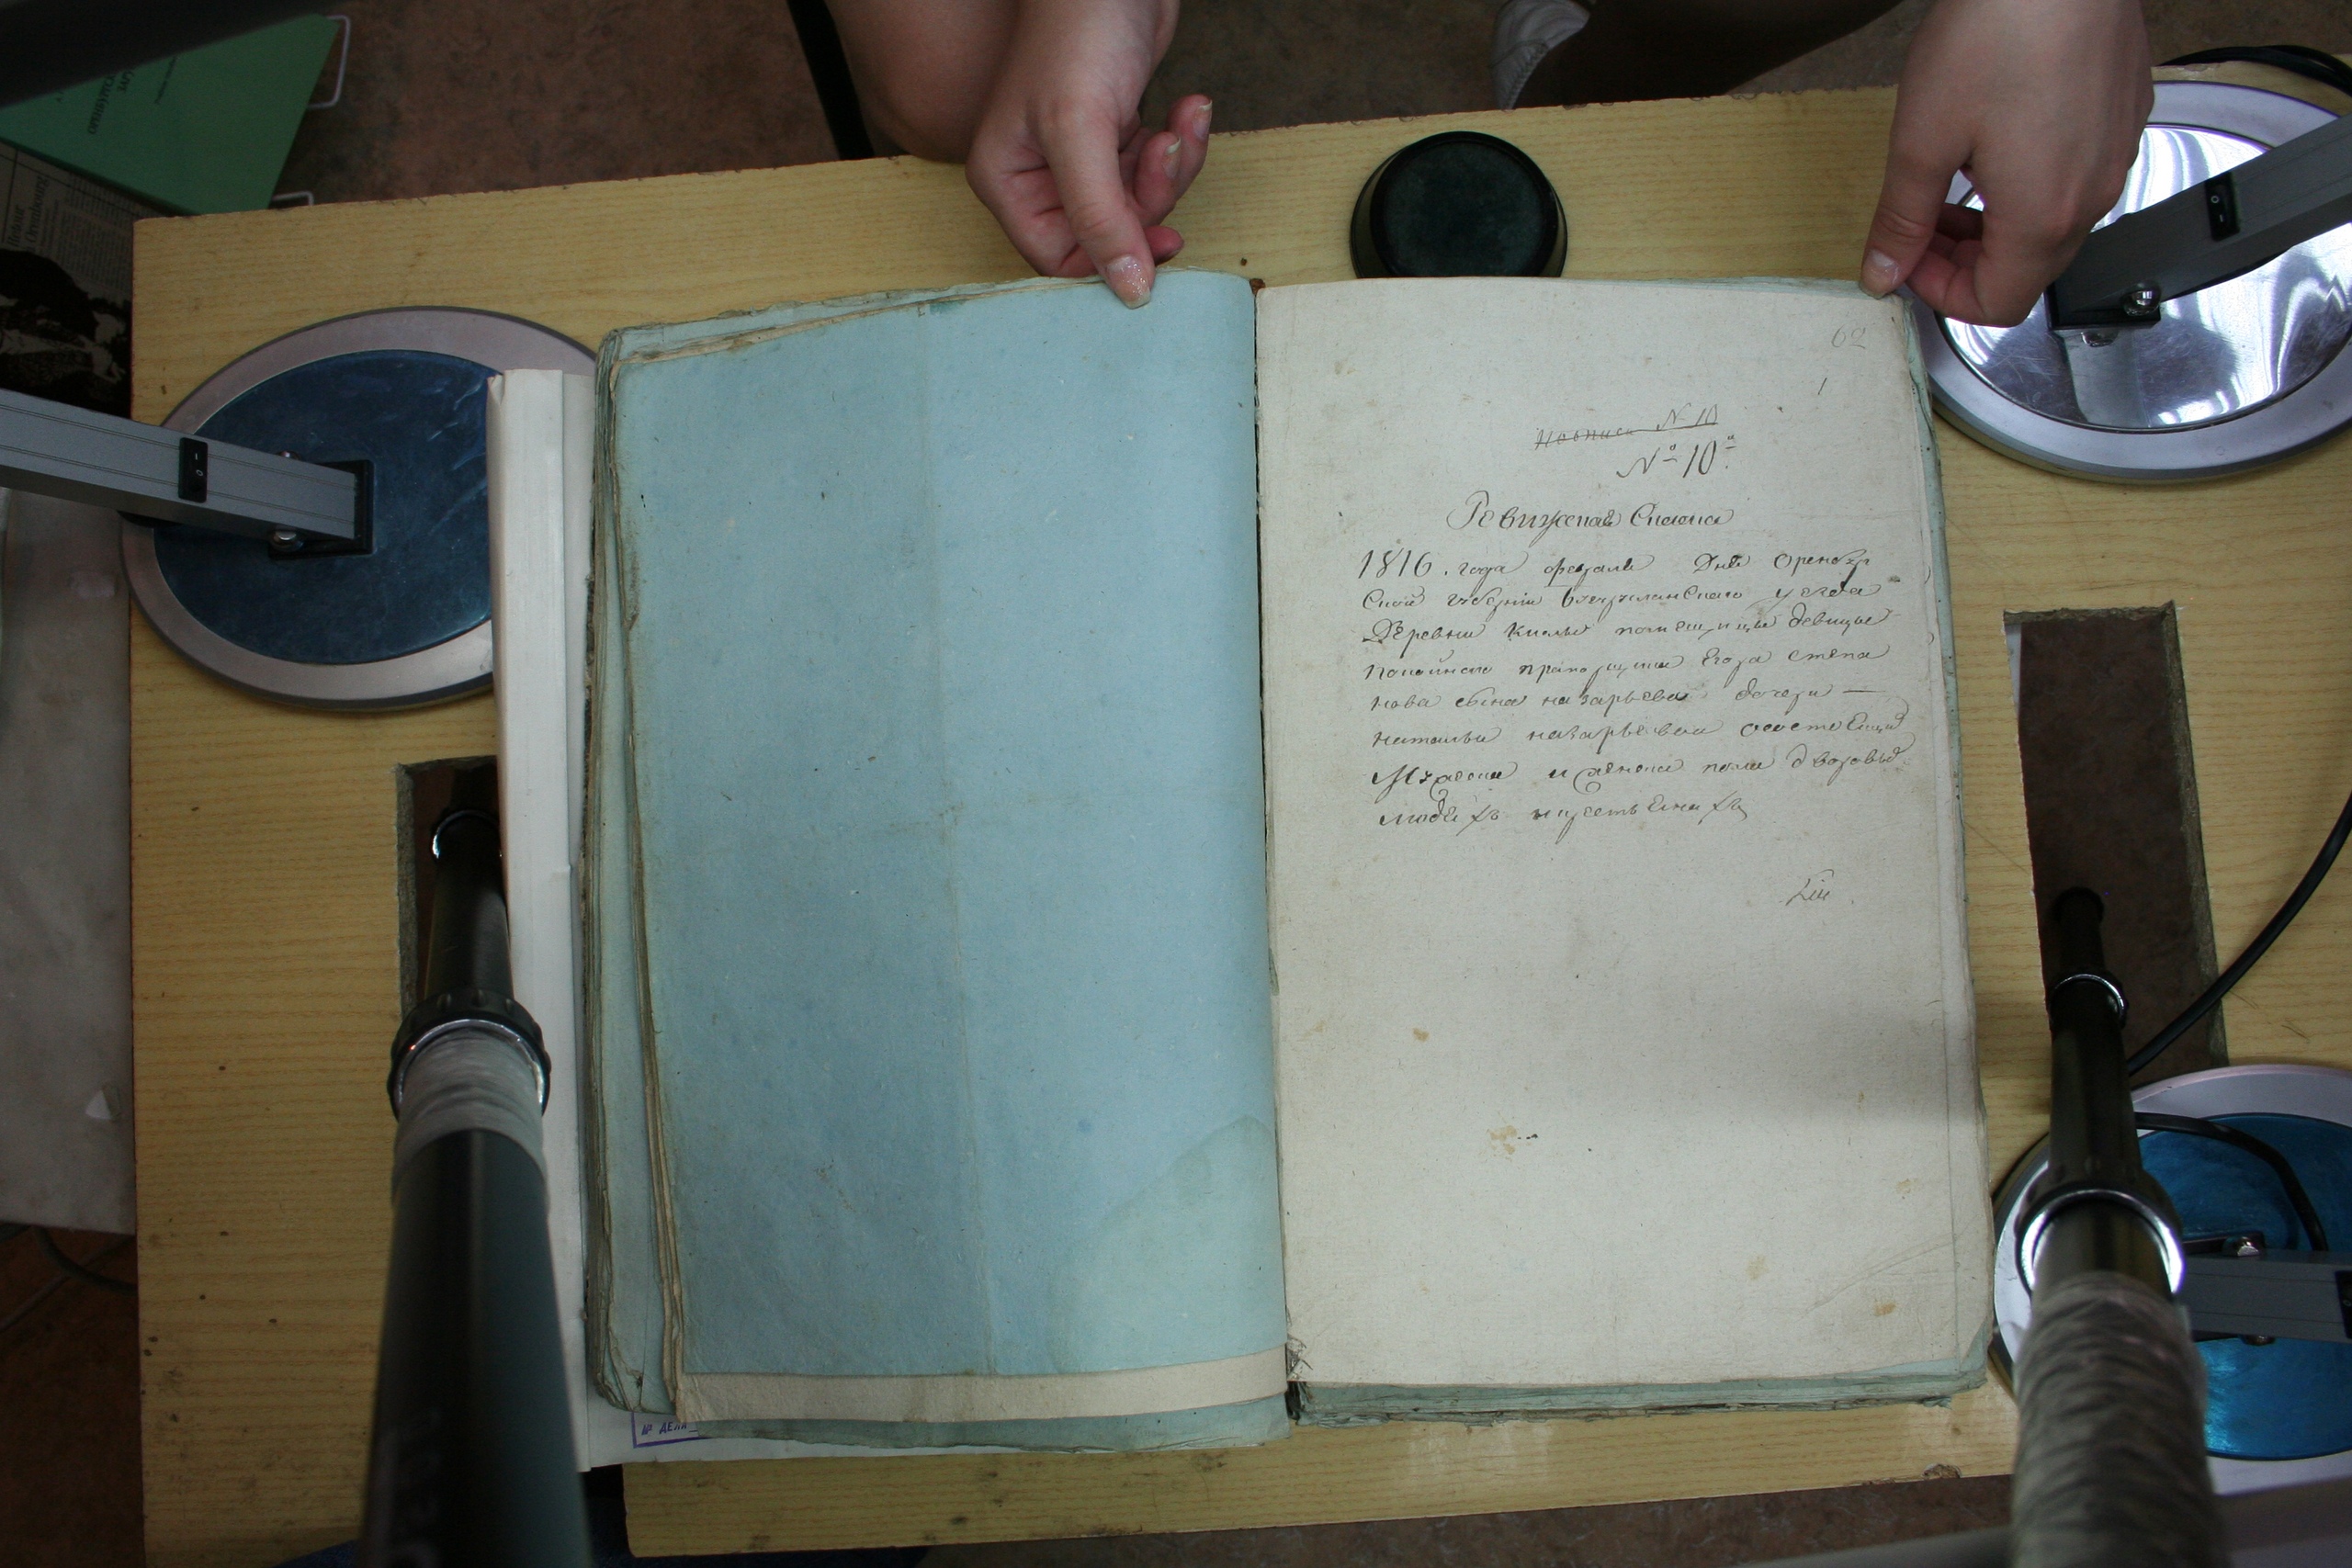 62
1
№ 10
№ 10.
Ревижская Сказка
1816. года февраля Дня Оренбур
Ской губернии бугурусланскаго уезда
Деревни помещицы девицы
покойнаго прапорщика Егора степа
нова сына назарьева дочери —
натальи назарьевой о состоящих
Мужеска и женска пола дворовых
людях и крестьянах
№ ДЕЛА